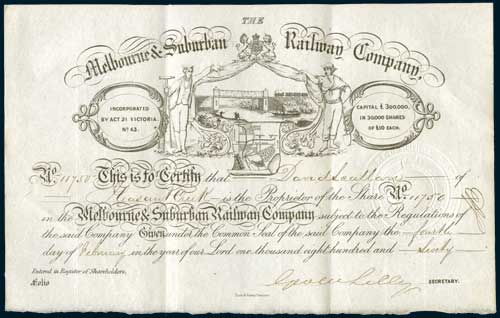 THE
Melbourne & Suburban Railway Company,
INCORPORATED
BY ACT 21 VICTORIA.
No 43.
CAPITAL £300,000,
IN 30,000 SHARES
OF £10 EACH.
No. 11750 This is to Certify that David of
Creek is the Proprietor of the Share No. 11750
in the Melbourne & Suburban Railway Company, subject to the Regulations of
the said Company Given under the Common Seal of the said Company the fourth
day of February in the year of our Lord one thousand eight hundred and Sixty
Entered in Register of Shareholders.
Folio
SECRETARY.